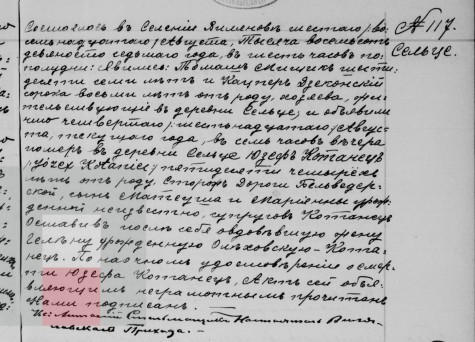 Состоялось въ Селеніи Вилановъ шестаго/во-
семьнадцатаго/Августа, тысяча восемьсотъ
девяносто седьмаго года, въ шесть часовъ по
полудни. Явились: Томашъ шести-
десяти семи лѣтъ и Кацперъ Дзеконскій
сорока восьми лѣтъ отъ роду, хозяева, жи-
тельствующіе въ деревни Сельце, и объявили
что четвертаго/шестьнадцатаго/Авгус-
та, текущаго года, въ семь часовъ вечера
померъ въ деревни Сельце Юзефъ Котанецъ
/Józef Kotaniec/ пятидесяти четырехъ
лѣтъ отъ роду, Сторожъ Дороги Бельведер-
ской, сынъ Матеуша и Маріанны урож-
денной неизвестно, супруговъ Котанецъ
Оставивъ послѣ себя овдовѣвшую жену
урожденную Ольховскую-Кота-
нецъ. По наочномъ удостовѣреніи о смер-
ти Юзефа Котанецъ, Актъ сей объя-
вляющимъ неграмотнымъ прочитанъ
Нами подписанъ.
Кс: Антоній Настоятель Виля-
новскаго Прихода.
№ 117.
Сельце.